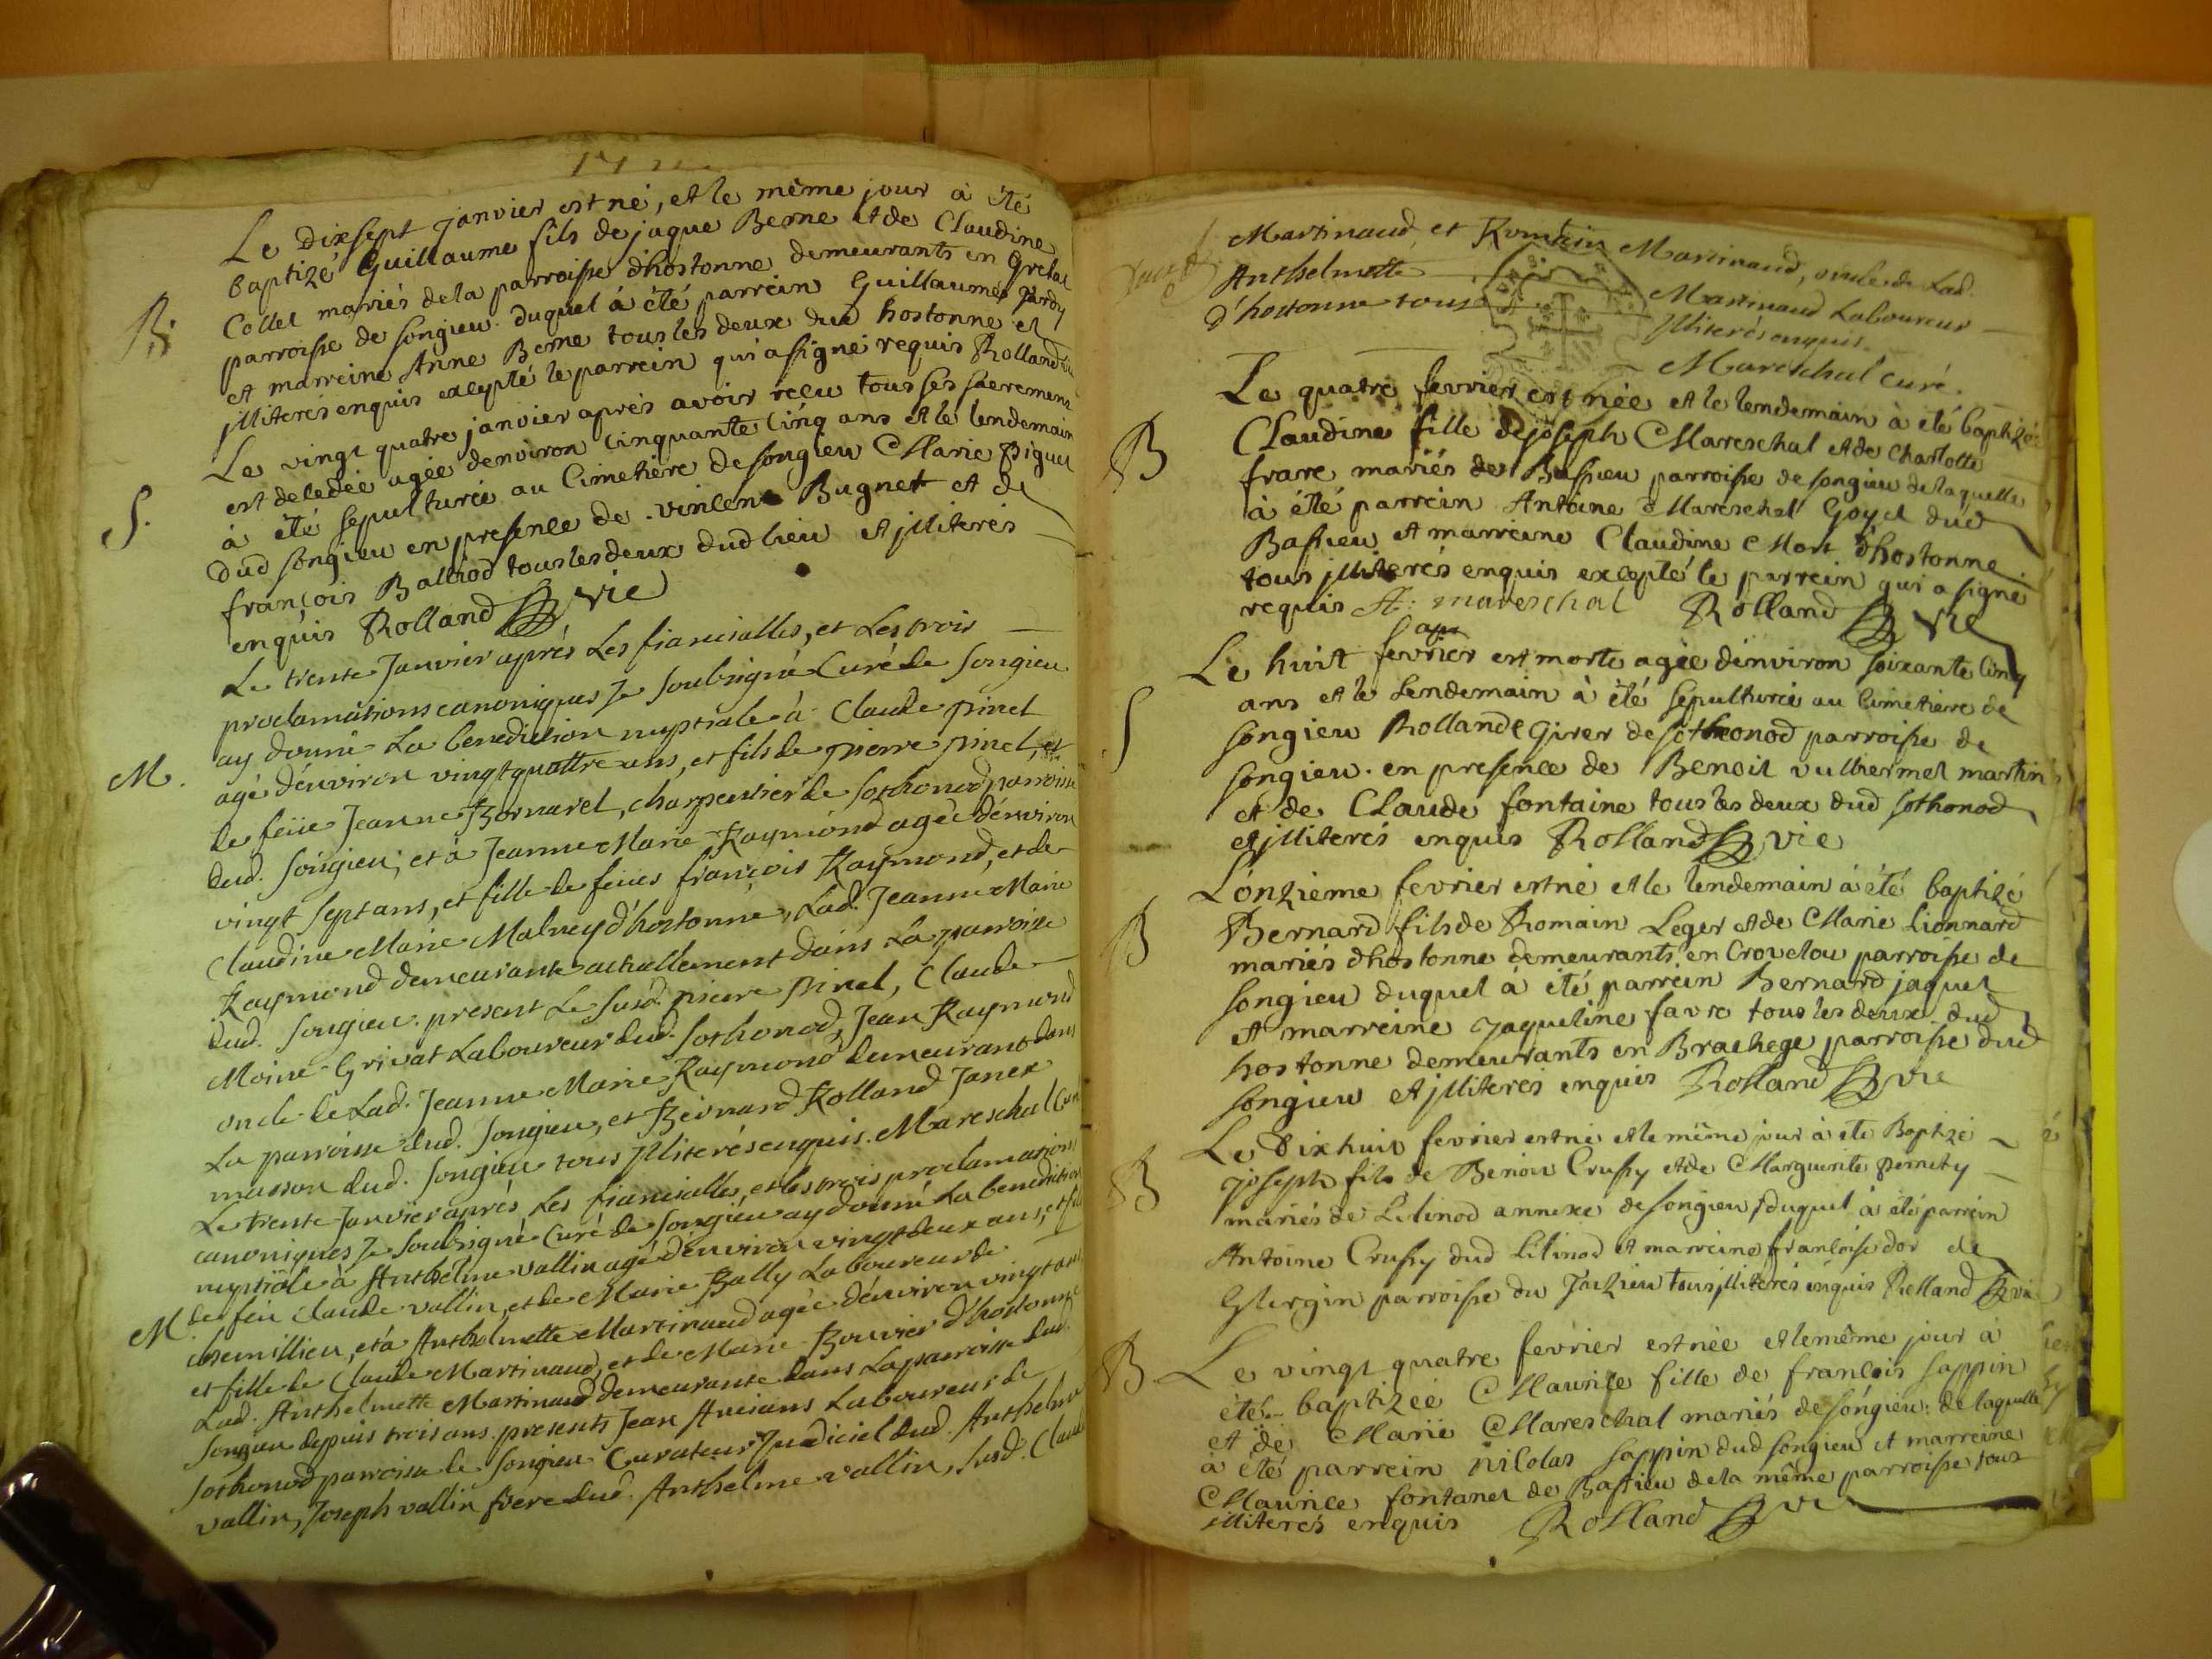 Le dixsept janvier est né, et le même jour à été
baptizé Guillaume fils de jaque Berne et de Claudine
Collet mariés de la parroisse dhostonne demeurants en
B. parroisse de songieu. duquel à été parrein Guillaume
et marreine Anne Berne tous les deux dud hostonne et
jlliterés enquis excepté le parrein qui a signé requis Rolland
Le vingt quatre janvier aprés avoir reçu tous ses sacremens
est decedée agée denviron Cinquante Cinq ans et le lendemain
S. à été sepulturée au Cimetière de songieu Marie Piguet
dud songieu en presence de vincent Bugnet et de
françois Balliod tous les deux dud lieu et jlliterés
enquis Rolland vic
Le trente Janvier aprés Les fiancialles, et Les trois
proclamations canoniques Je soubsigné Curé de Songieu
ay donné La benediction nuptiale à Claude pinel
M. agé d'environ vingt quattre ans, et fils de pierre pinel, et
de feüe Jeanne Bornarel, charpentier de Sothonod parroisse
dud. Songieu; et à Jeanne Marie Raymond agée d'environ
vingt sept ans, et fille de feües françois Raymond, et de
Claudine Marie Malney d'hostonne, Lad. Jeanne Marie
Raymond demeurante actuellement dans La parroisse
dud. Songieu. present Le susd. pierre pinel, Claude
Moine Grivat Laboureur dud. Sothonod, Jean Raymond
oncle de Lad. Jeanne Marie Raymond demeurant dans
La parroisse dud. Songieu, et Bernard Rolland Janex
masson dud. Songieu tous Jlliterés enquis. Mareschal Curé
Le trente Janvier aprés Les fiancialles, et les trois proclamations
canoniques Je soubsigné Curé de Songieu ay donné La benediction
nuptiale à Anthelme vallin agé d'environ vingt deux ans, et fils
M. de feu Claude vallin, et de Marie Bally Laboureur de
chemillieu, et à Anthelmette Martinaud agée d'environ vingt ans
et fille de Claude Martinaud, et de Marie Bouvier d'hostonne
Lad. Anthelmette Martinaud demeurante dans La parroisse dud.
Songieu depuis trois ans. presents Jean Laboureur de
Sothonod parroisse de Songieu Curateur Judiciel dud. Anthelme
vallin, Joseph vallin frere dud. Anthelme vallin, susd. Claude
Martinaud, et Romain Martinaud, oncle de Lad.
Anthelmette Martinaud Laboureur
d'hostonne tous Jlliterés enquis.
Mareschal curé.
Le quatre fevrier est née et le lendemain à été baptizée
B Claudine fille de joseph Mareschal et de Charlotte
frare mariés de Bassieu parroisse de songieu de laquelle
à été parrein Antoine Mareschal Goyet dud
Bassieu et marreine Claudine Mort dhostonne
tous jlliterés enquis excepté le parrein qui a signé
requis A: mareschal Rolland vic
Le huit fevrier est morte agée d'environ soixante Cinq
S ans et le lendemain à été sepulturée au Cimetiere de
songieu Rollande Girer de sothonod parroisse de
songieu. en presence de Benoit vulliermet martin
et de Claude fontaine tous les deux dud sothonod
et jlliterés enquis Rolland vic
L'onzième fevrier est né et le lendemain à été baptizé
B Bernard fils de Romain Leger et de Marie Lionnard
mariés dhostonne demeurants en Crovelou parroisse de
songieu duquel à été parrein Bernard jaquet
et marreine jaqueline favre tous les deux dud
hostonne demeurants en Brachege parroisse dud
songieu et jlliterés enquis Rolland vic
Le Dixhuit fevrier est né et le même jour à été Baptizé
B joseph fils de Benoit Crussy et de Marguerite pernety
mariés de Lilinod annexe de songieu, duquel à été parrein
Antoine Crussy dud Lilinod et marreine françoise dor de
parroisse du tous jlliterés enquis Rolland vic
B Le vingt quatre fevrier est née et le même jour à
été baptizée Maurice fille de françois sappin
et de Marie Mareschal mariés de songieu: de laquelle
à été parrein nicolas sappin dud songieu et marreine
Maurice fontanel de Bassieu de la même parroisse tous
illiterés enquis Rolland vic